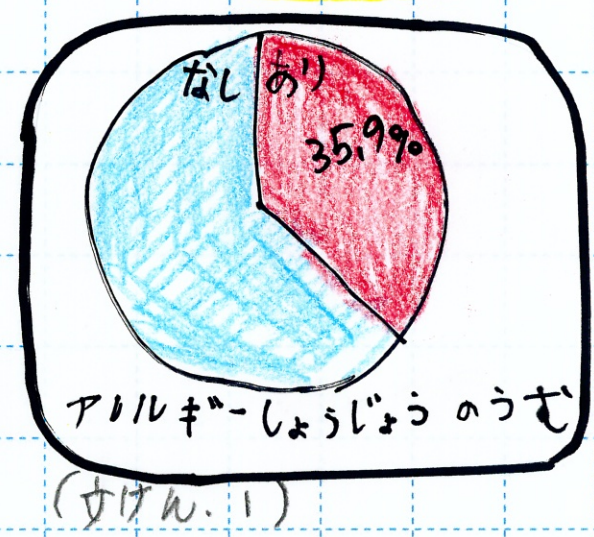 なし あり
35.9%
アレルギーしょうじょうのうむ